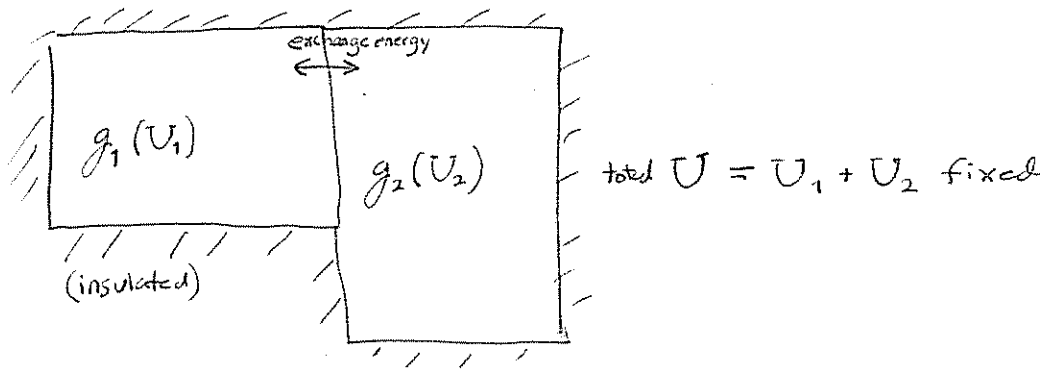 exchange energy
g₁(U₁)
g₂(U₂)
total U = U₁ + U₂ fixed
(insulated)